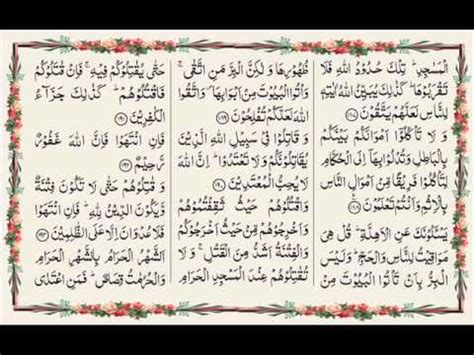 الْمَسٰجِدِ ؕ تِلْكَ حُدُوْدُ اللّٰهِ فَلَا
تَقْرَبُوْهَا ؕ كَذٰلِكَ يُبَيِّنُ اللّٰهُ اٰيٰتِهٖ
لِلنَّاسِ لَعَلَّهُمْ يَتَّقُوْنَ ﴿۱۸۷﴾
وَ لَا تَاْكُلُوْۤا اَمْوَالَكُمْ بَيْنَكُمْ
بِالْبَاطِلِ وَ تُدْلُوْا بِهَاۤ اِلَى الْحُكَّامِ
لِتَاْكُلُوْا فَرِيْقًا مِّنْ اَمْوَالِ النَّاسِ
بِالْاِثْمِ وَ اَنْتُمْ تَعْلَمُوْنَ ﴿۱۸۸﴾
يَسْـَٔلُوْنَكَ عَنِ الْاَهِلَّةِ ؕ قُلْ هِيَ
مَوَاقِيْتُ لِلنَّاسِ وَ الْحَجِّ ؕ وَ لَيْسَ
الْبِرُّ بِاَنْ تَاْتُوا الْبُيُوْتَ مِنْ
ظُهُوْرِهَا وَ لٰكِنَّ الْبِرَّ مَنِ اتَّقٰى ۚ
وَ اْتُوا الْبُيُوْتَ مِنْ اَبْوَابِهَا ۪ وَ اتَّقُوا
اللّٰهَ لَعَلَّكُمْ تُفْلِحُوْنَ ﴿۱۸۹﴾
وَ قَاتِلُوْا فِيْ سَبِيْلِ اللّٰهِ الَّذِيْنَ
يُقَاتِلُوْنَكُمْ وَ لَا تَعْتَدُوْا ؕ اِنَّ اللّٰهَ
لَا يُحِبُّ الْمُعْتَدِيْنَ ﴿۱۹۰﴾
وَ اقْتُلُوْهُمْ حَيْثُ ثَقِفْتُمُوْهُمْ
وَ اَخْرِجُوْهُمْ مِّنْ حَيْثُ اَخْرَجُوْكُمْ
وَ الْفِتْنَةُ اَشَدُّ مِنَ الْقَتْلِ ۚ وَ لَا
تُقٰتِلُوْهُمْ عِنْدَ الْمَسْجِدِ الْحَرَامِ
حَتّٰى يُقٰتِلُوْكُمْ فِيْهِ ۚ فَاِنْ قٰتَلُوْكُمْ
فَاقْتُلُوْهُمْ ؕ كَذٰلِكَ جَزَآءُ
الْكٰفِرِيْنَ ﴿۱۹۱﴾
فَاِنِ انْتَهَوْا فَاِنَّ اللّٰهَ غَفُوْرٌ
رَّحِيْمٌ ﴿۱۹۲﴾
وَ قٰتِلُوْهُمْ حَتّٰى لَا تَكُوْنَ فِتْنَةٌ
وَّ يَكُوْنَ الدِّيْنُ لِلّٰهِ ؕ فَاِنِ انْتَهَوْا
فَلَا عُدْوَانَ اِلَّا عَلَى الظّٰلِمِيْنَ ﴿۱۹۳﴾
اَلشَّهْرُ الْحَرَامُ بِالشَّهْرِ الْحَرَامِ
وَ الْحُرُمٰتُ قِصَاصٌ ؕ فَمَنِ اعْتَدٰى